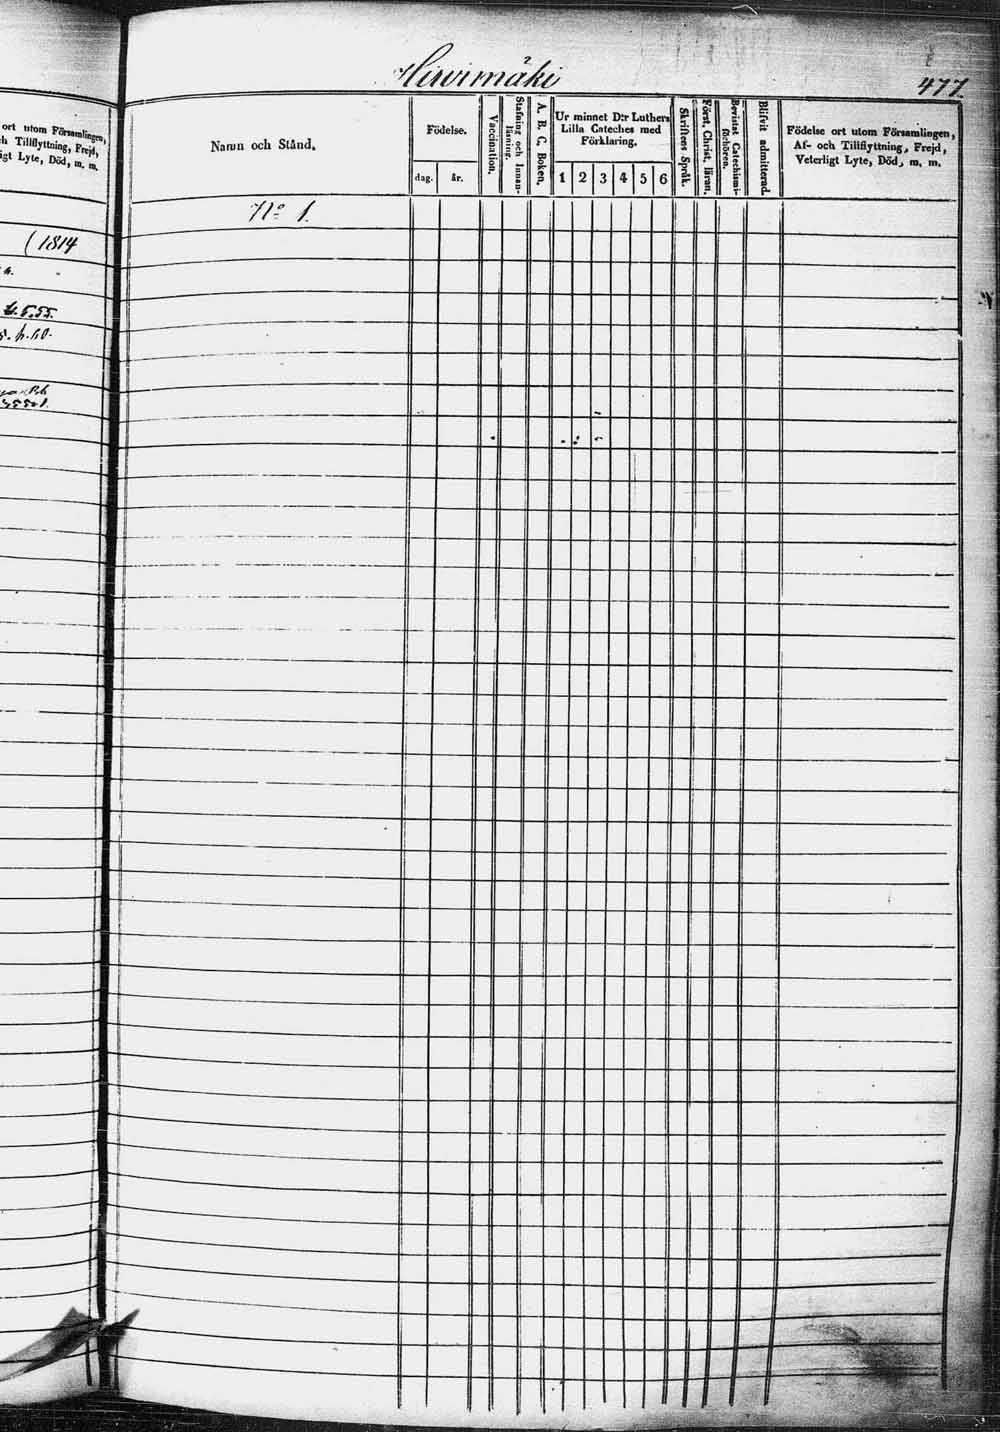 Hirvimäki
477
ort utom Församlingen,
Tillflyttning, Frejd,
igt Lyte, Död, m. m.
(1814
Namn och Stånd.
Födelse.
dag.
år.
Vaccination.
Stafning och Innan-
läsning.
A. B. C. Boken.
Ur minnet D:r Luthers
Lilla Cateches med
Förklaring.
1 2 3 4 5 6
Skriftens Språk.
Först. Christ. läran.
Bevistat Catechismi-
förhören.
Blifvit admitterad.
Födelse ort utom Församlingen,
Af- och Tillflyttning, Frejd,
Veterligt Lyte, Död, m. m.
No 1.